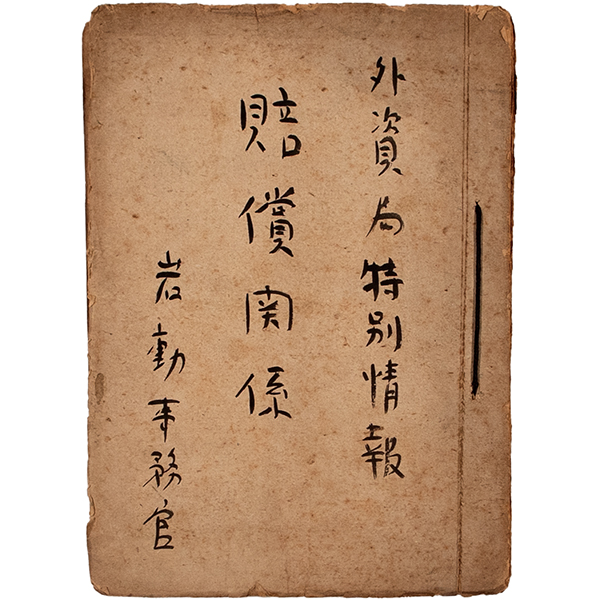 外資局特別情報
賠償関係
岩動事務官